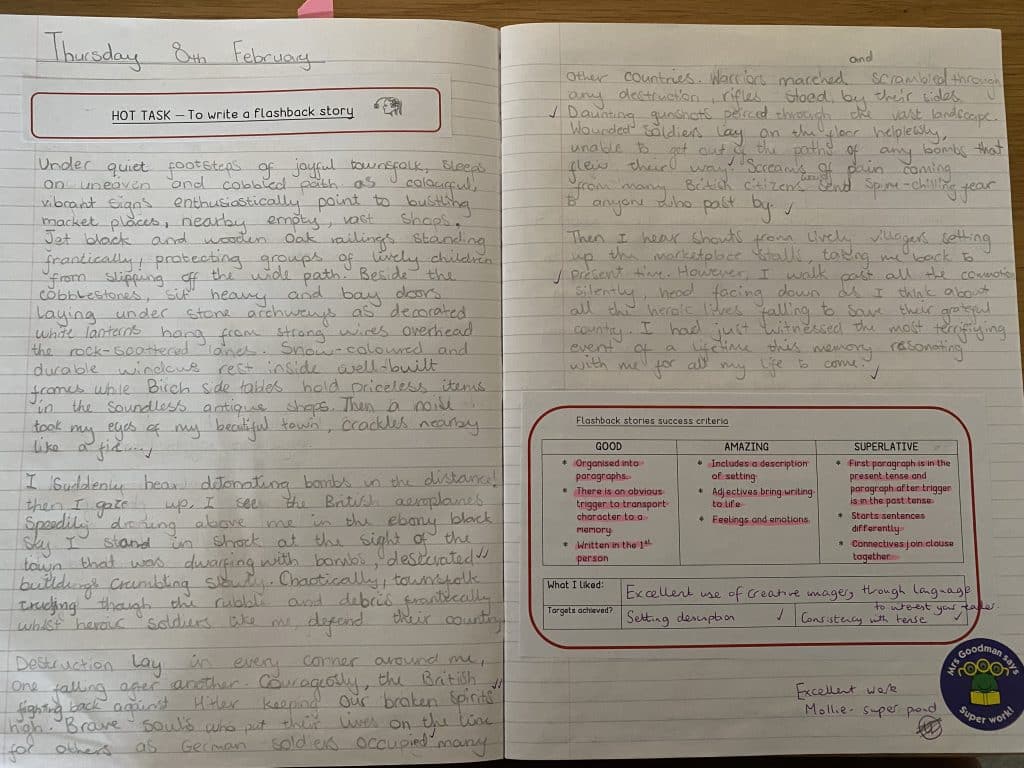 Thursday 8th February
HOT TASK – To write a flashback story
Under quiet footsteps of joyful townsfolk, sleeps
on uneven and cobbled path as colourful,
vibrant signs enthusiastically point to bustling
market places, nearby empty, vast shops.
Jet black and wooden oak railings standing
frantically, protecting groups of lively children
from slipping off the wide path. Beside the
cobblestones, sit heavy and bay doors
laying under stone archways as decorated
white lanterns hang from strong wires overhead
the rock-scattered lanes. Snow-coloured and
durable windows rest inside well-built
frames while Birch side tables hold priceless items
in the soundless antique shops. Then a noise
took my eyes of my beautiful town, crackles nearby
like a
I suddenly hear detonating bombs in the distance!
then I gaze up, I see the British aeroplanes
Speedily droning above me in the ebony black
sky. I stand in shock at the sight of the
town that was dwarfing with bombs, desicrated
buildings crumbling slowly. Chaotically, townsfolk
trudging though the rubble and debris frantically
whilst heroic soldiers like me, defend their country
Destruction lay in every corner around me,
one falling after another. Courageously, the British
fighting back against Hitler keeping our broken spirits
high. Brave souls who put their lives on the line
for others as German soldiers occupied many
and
other countries. Warriors marched scrambled through
any destruction, rifles stood by their sides
Daunting gunshots peirced through the vast landscape.
Wounded soldiers lay on the floor helplessly,
unable to get out of the paths of any bombs that
flew their way! Screams of pain coming
from many British citizens send spine-chilling fear
to anyone who past by.
Then I hear shouts from lively villagers setting
up the marketplace stalls, taking me back to
present time. However, I walk past all the commotion
silently, head facing down as I think about
all the heroic lives falling to save their grateful
country. I had just witnessed the most terrifiying
event of a lifetime this memory resonating
with me for all my life to come.
Flashback stories success criteria
GOOD
Organised into
paragraphs.
There is an obvious
trigger to transport
character to a
memory
Written in the 1st
person
AMAZING
Includes a description
of setting
Adjectives bring writing
to life
Feelings and emotions
SUPERLATIVE
First paragraph is in the
present tense and
paragraph after trigger
is in the past tense.
Starts sentences
differently.
Connectives join clause
together.
What I liked:
Excellent use of creative imagery through language
to interest your reader
Targets achieved?
Setting description ✓
Consistency with tense ✓
Excellent work
Mollie - super proud
Mrs Goodman says
Super work!